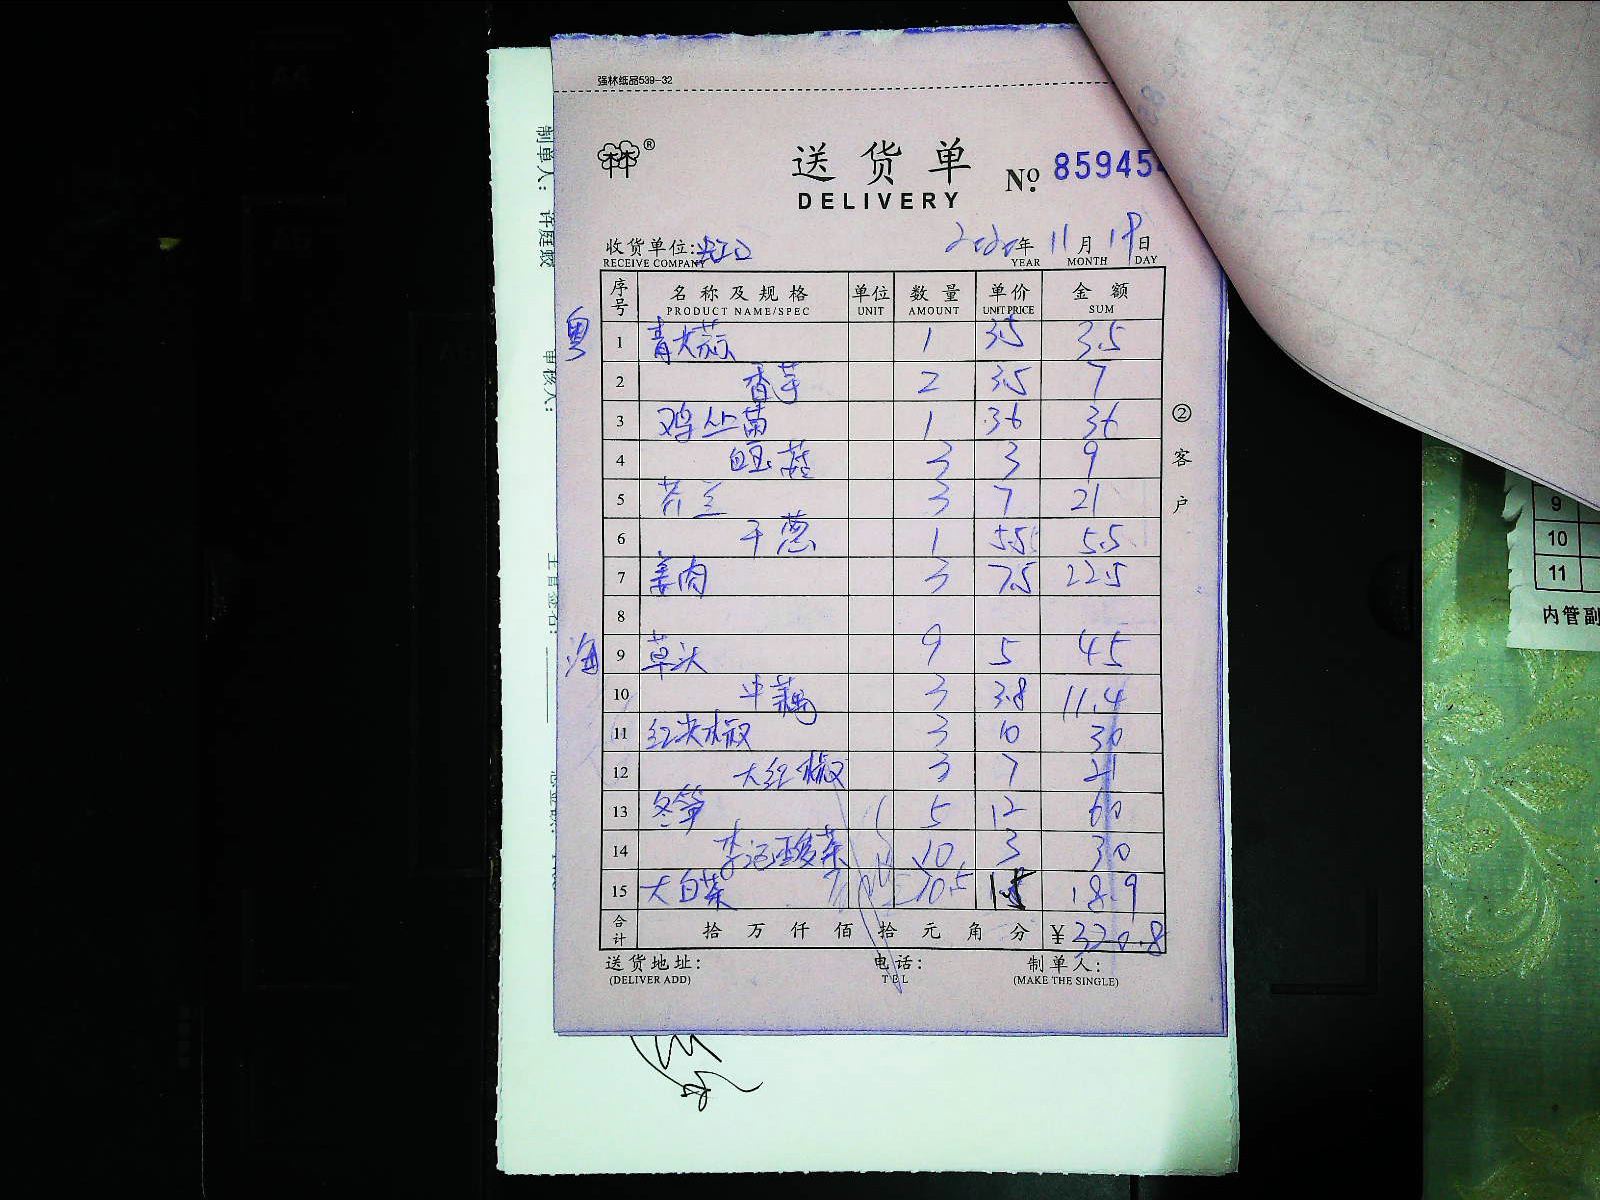 强林纸品539-32
林林®
送货单
DELIVERY
№ 85945
收货单位:
RECEIVE COMPANY
2020年 11月 19日
YEAR MONTH DAY
序号 名称及规格 单位 数量 单价 金额
PRODUCT NAME/SPEC UNIT AMOUNT UNIT PRICE SUM
粤
1 青大蒜 1 3.5 3.5
2 香芋 2 3.5 7
3 鸡丛菌 1 36 36
4 白玉菇 3 3 9
5 芥兰 3 7 21
6 干葱 1 5.5 5.5
7 姜肉 3 7.5 22.5
8
海
9 草头 9 5 45
10 中藕 3 3.8 11.4
11 红尖椒 3 10 30
12 大红椒 3 7 21
13 冬笋 5 12 60
14 李记酸菜 10 3 30
15 大白菜 10.5 1.8 18.9
合计 拾 万 仟 佰 拾 元 角 分 ¥320.8
送货地址: 电话: 制单人:
(DELIVER ADD) TEL (MAKE THE SINGLE)
②客户
制单人: 许庭
审核人:
9
10
11
内管副